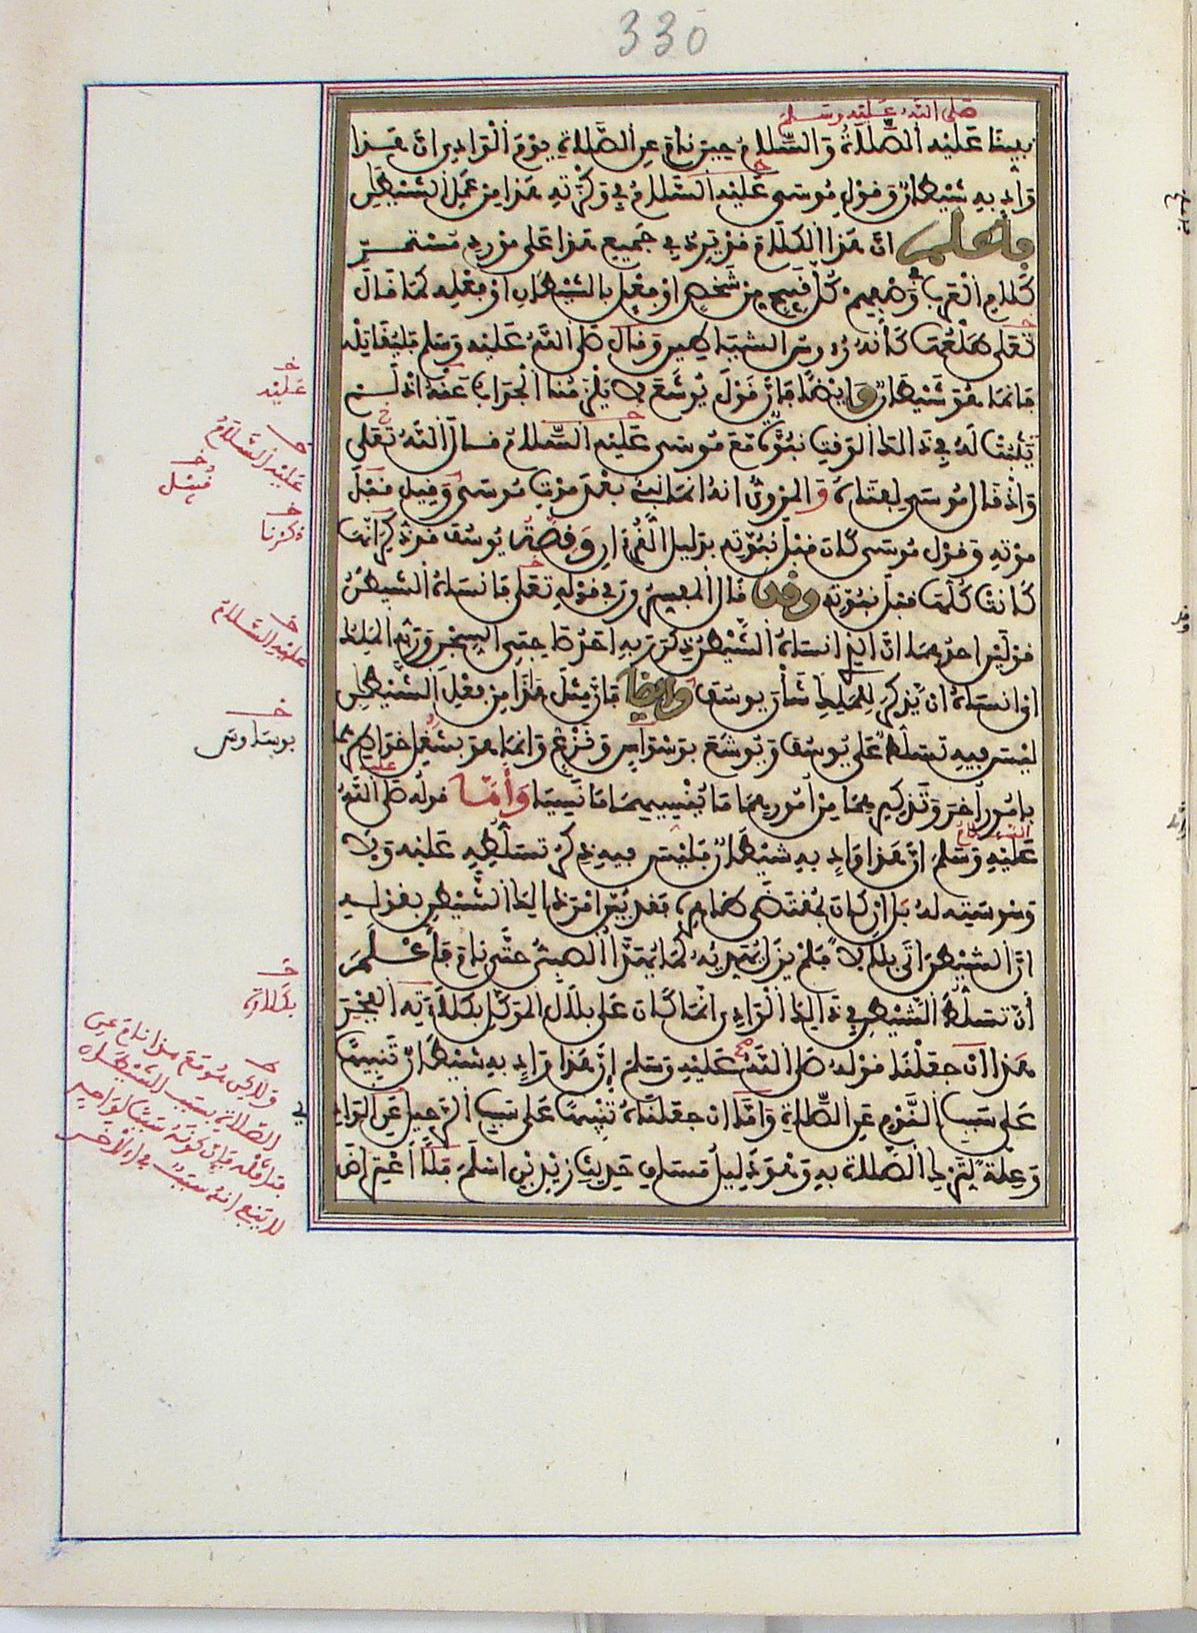 330
صلى الله عليه وسلم
نبينا عليه الصلاة والسلام حين نام عن الصلاة يوم الوادي ان هذا
واد به شيطان وقول موسى عليه السلام في وكزته هذا من عمل الشيطن
فاعلم ان هذا الكلام قد يرد في جميع هذا على مورد مستمر
كلام العرب في وصفهم كل قبيح من شخص او فعل بالشيطان او فعله كما قال
تعلى طلعها كانه رءوس الشياطين وقال صلى الله عليه وسلم فليقاتله
فانما هو شيطان وايضا فان قول يوشع لا يلزمنا الجواب عنه اذ لم
يثبت له في ذالك الوقت نبوة مع موسى عليه السلام قال الله تعلى
واذ قال موسى لفتاه والمروي انه انما نبئ بعد موت موسى وقيل قبل
موته وقول موسى كان قبل نبوته بدليل القرءان وقصة يوسف قد ذكر انها
كانت كلها قبل نبوته وقد قال المفسرون في قوله تعلى فانساه الشيطن
قولين احدهما ان الذي انساه الشيطن ذكر ربه احد صاحبي السجن وربه الملك
اي انساه ان يذكر للملك شأن يوسف وايضا فان مثل هذا من فعل الشيطن
ليس فيه تسلط على يوسف ويوشع بوسواس ونزغ وانما هو بشغل خواطرهما
عليه
بامور اخر وتذكيرهما من امورهما ما ينسيهما ما نسيا وأما قوله صلى الله
السلام
عليه وسلم ان هذا واد به شيطان فليس فيه ذكر تسلطه عليه ولا
وسوسته له بل ان كان بمقتضى ظاهره فقد بين امر ذالك الشيطن بقوله
ان الشيطن اتى بلالا فلم يزل يهديه كما يهدأ الصبي حتى نام فاعلم
أن تسلط الشيطن في ذالك الوادي انما كان على بلال الموكل بكلاءته الفجر
هذا ان جعلنا قوله صلى الله عليه وسلم إن هذا واد به شيطان تنبيها
على سبب النوم عن الصلاة واما ان جعلناه تنبيها على سبب الرحيل عن الوادي
وعلة لترك الصلاة به وهو دليل مساق حديث زيد بن اسلم فلا اعتراض
عليه
عليه السلام
قبل
ذكرنا
عليه السلام
بوساوس
بكلاءة